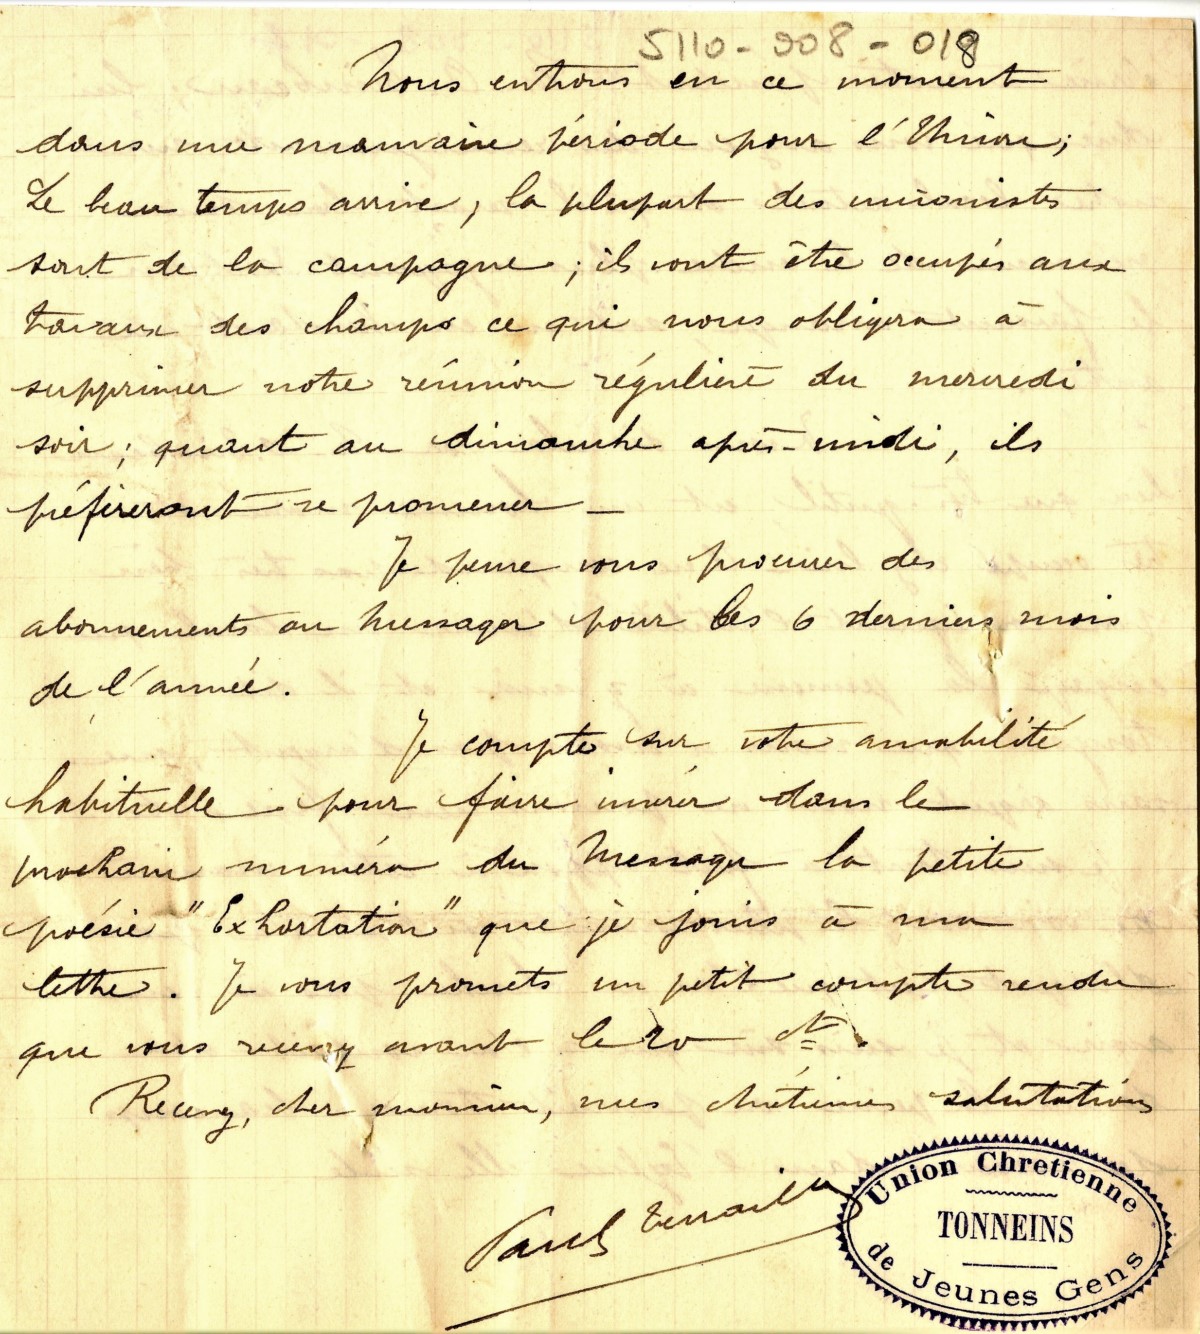 5110-908-018
Nous entrons en ce moment
dans une mauvaise période pour l'Union;
Le beau temps arrive, la plupart des unionistes
sont de la campagne; ils vont être occupés aux
travaux des champs ce qui nous obligera à
supprimer notre réunion régulière du mercredi
soir; quant au dimanche après-midi, ils
préfèreront se promener —
Je pense vous procurer des
abonnements au Messager pour les 6 derniers mois
de l'année.
Je compte sur votre amabilité
habituelle pour faire insérer dans le
prochain numéro du Messager la petite
poésie "Exhortation" que je joins à ma
lettre. Je vous promets un petit compte rendu
que vous recevrez avant le 20 ct.
Recevez, cher monsieur, mes chrétiennes salutations
Paul
Union Chretienne
TONNEINS
de Jeunes Gens